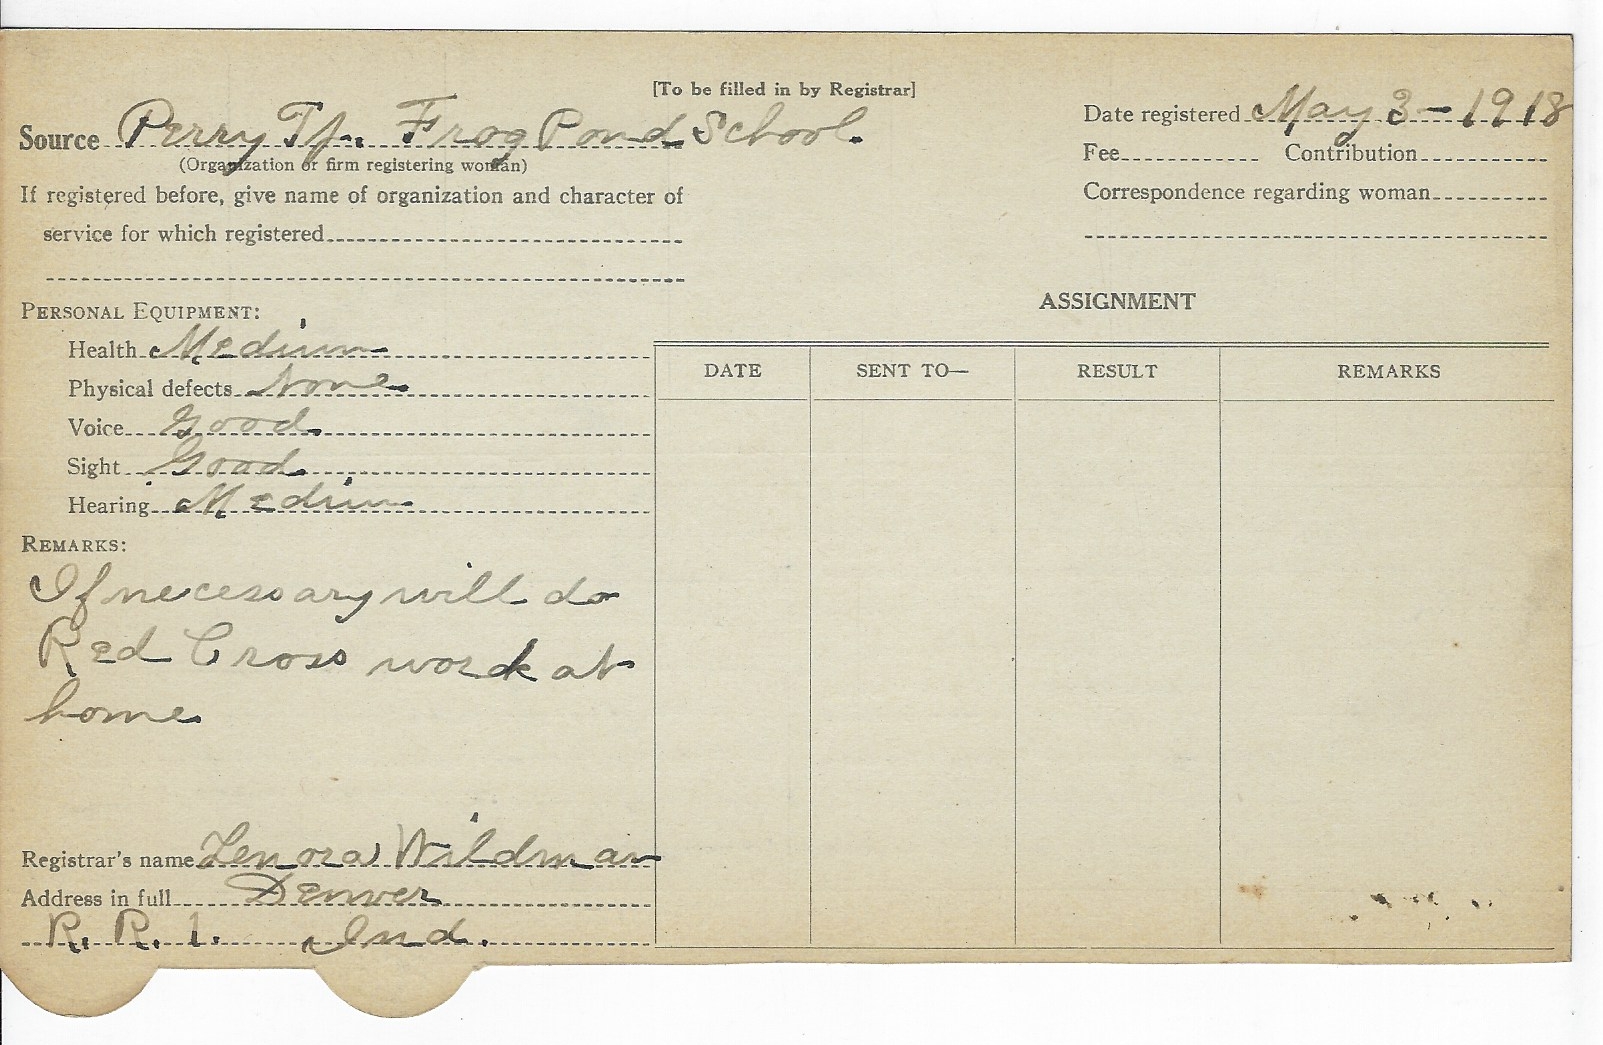 [To be filled in by Registrar]
Source Perry Tp. Frog Pond School.
(Organization or firm registering woman)
If registered before, give name of organization and character of
service for which registered
Date registered May 3-1918
Fee Contribution
Correspondence regarding woman
PERSONAL EQUIPMENT:
Health Medium
Physical defects None
Voice Good
Sight Good
Hearing Medium
REMARKS:
If necessary will do
Red Cross work at
home
Registrar's name Lenora Wildman
Address in full Denver
R. R. 1. Ind.
ASSIGNMENT
DATE SENT TO— RESULT REMARKS